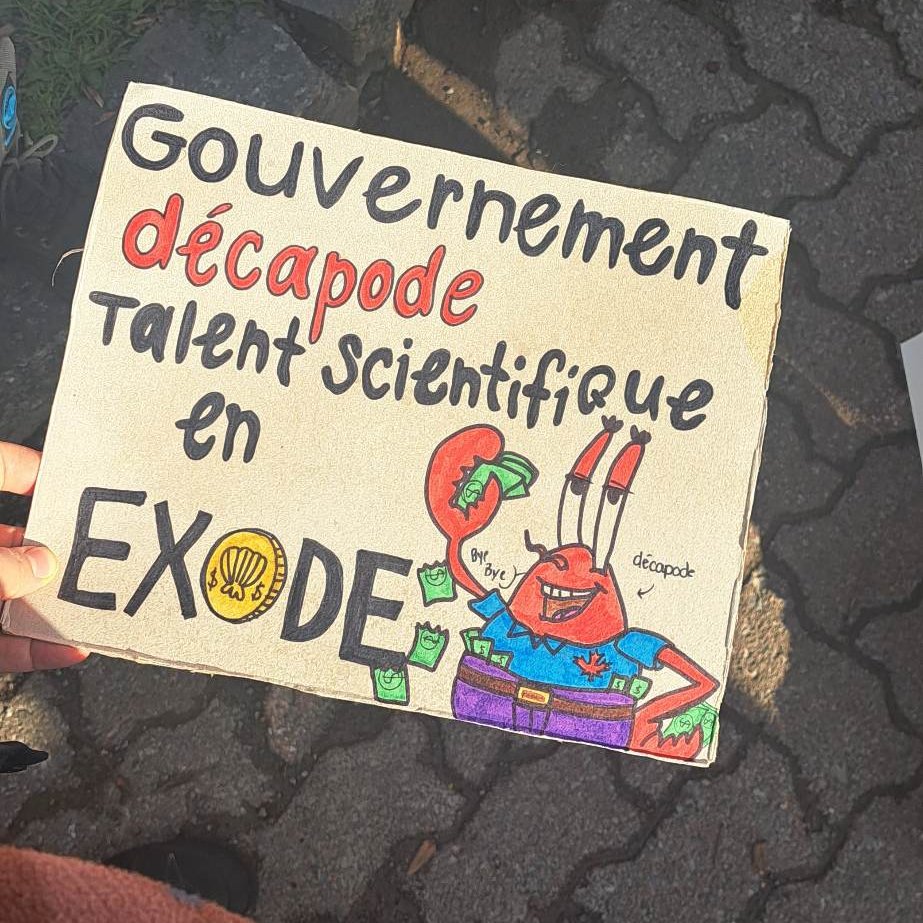 Gouvernement
décapode
Talent Scientifique
en
EXODE
Bye
Bye
décapode